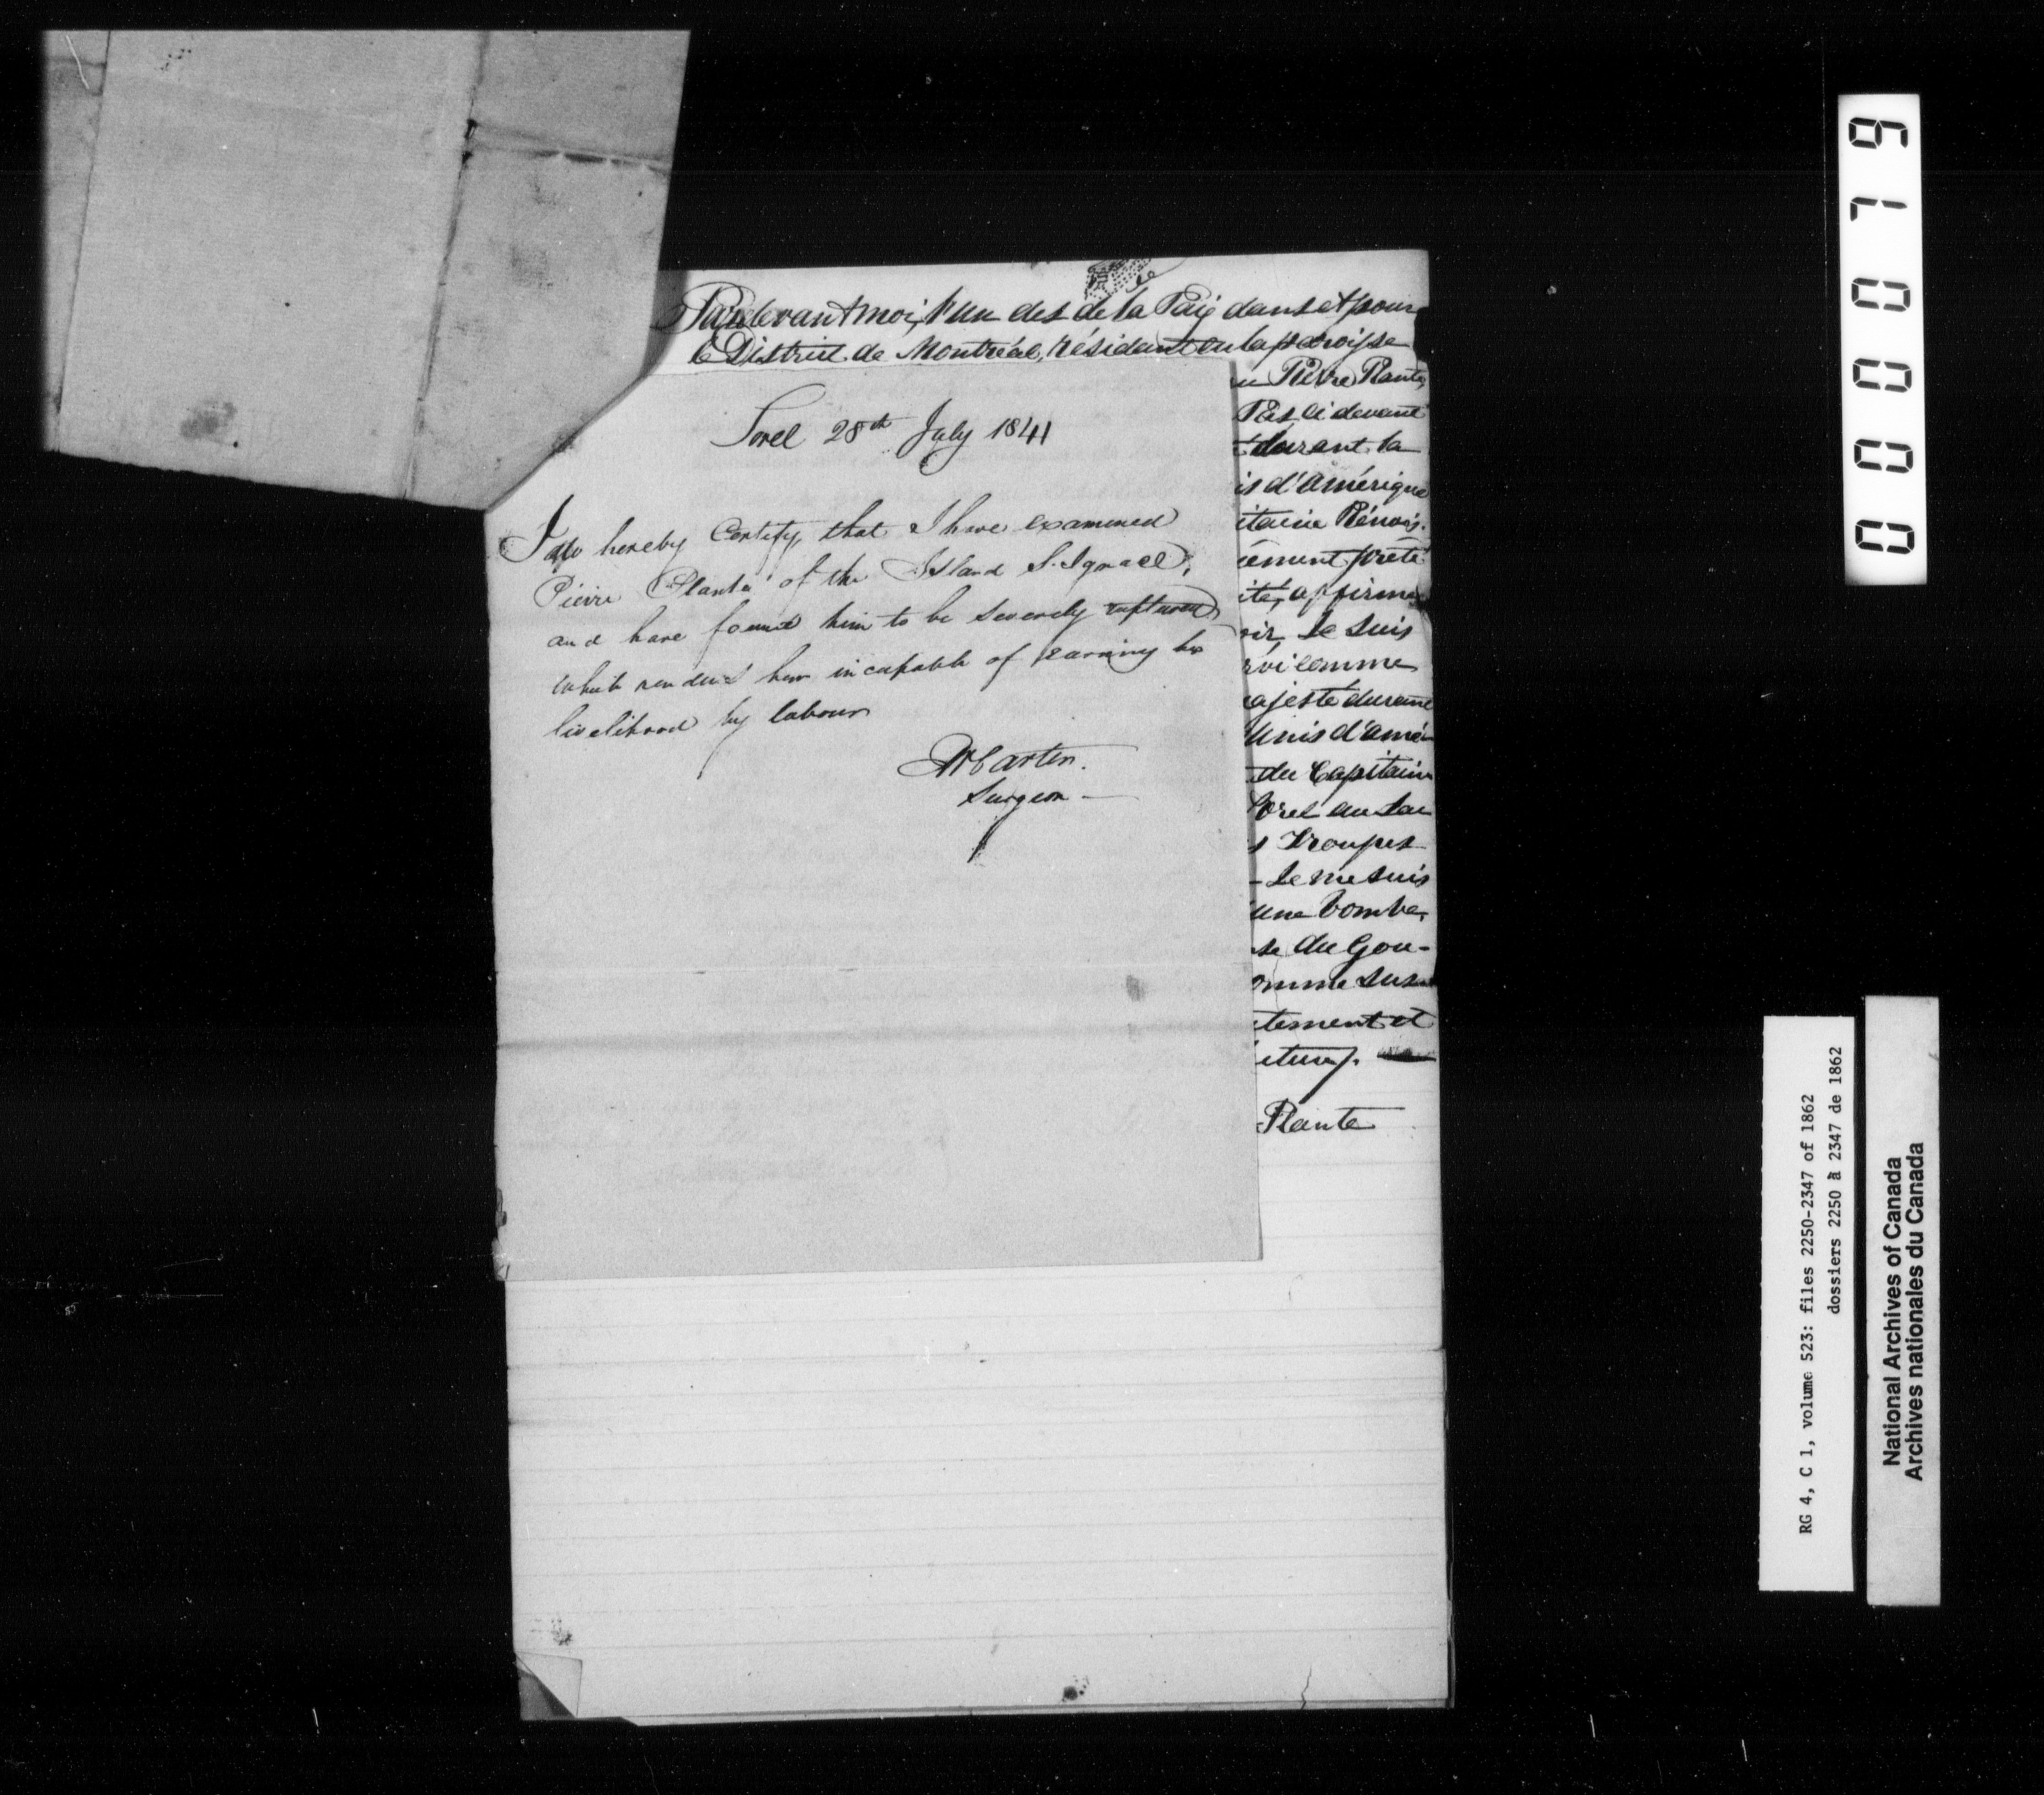 Pardevant moi, l'un des de la Paix dans et pour
le District de Montréal, résidant en la paroisse
Pierre Plante
ci devant
durant la
is d'amérique
itaine
ément prété
ité, affirme
oir, Je suis
rvi comme
ajesté durant
Unis d'amé-
du Capitaine
orel au
s Troupes
- Je me suis
une bombe,
se du Gou-
omme sus-
tement et
cture/.
Plante
Sorel 28th July 1841
I do hereby Certify that I have examined
Pierre Plante of the Island S. Ignace,
and have found him to be severely ruptured
which renders him incapable of earning his
livelihood by labour
Carter.
Surgeon -
000079
RG 4, C 1, volume 523: files 2250-2347 of 1862
dossiers 2250 à 2347 de 1862
National Archives of Canada
Archives nationales du Canada